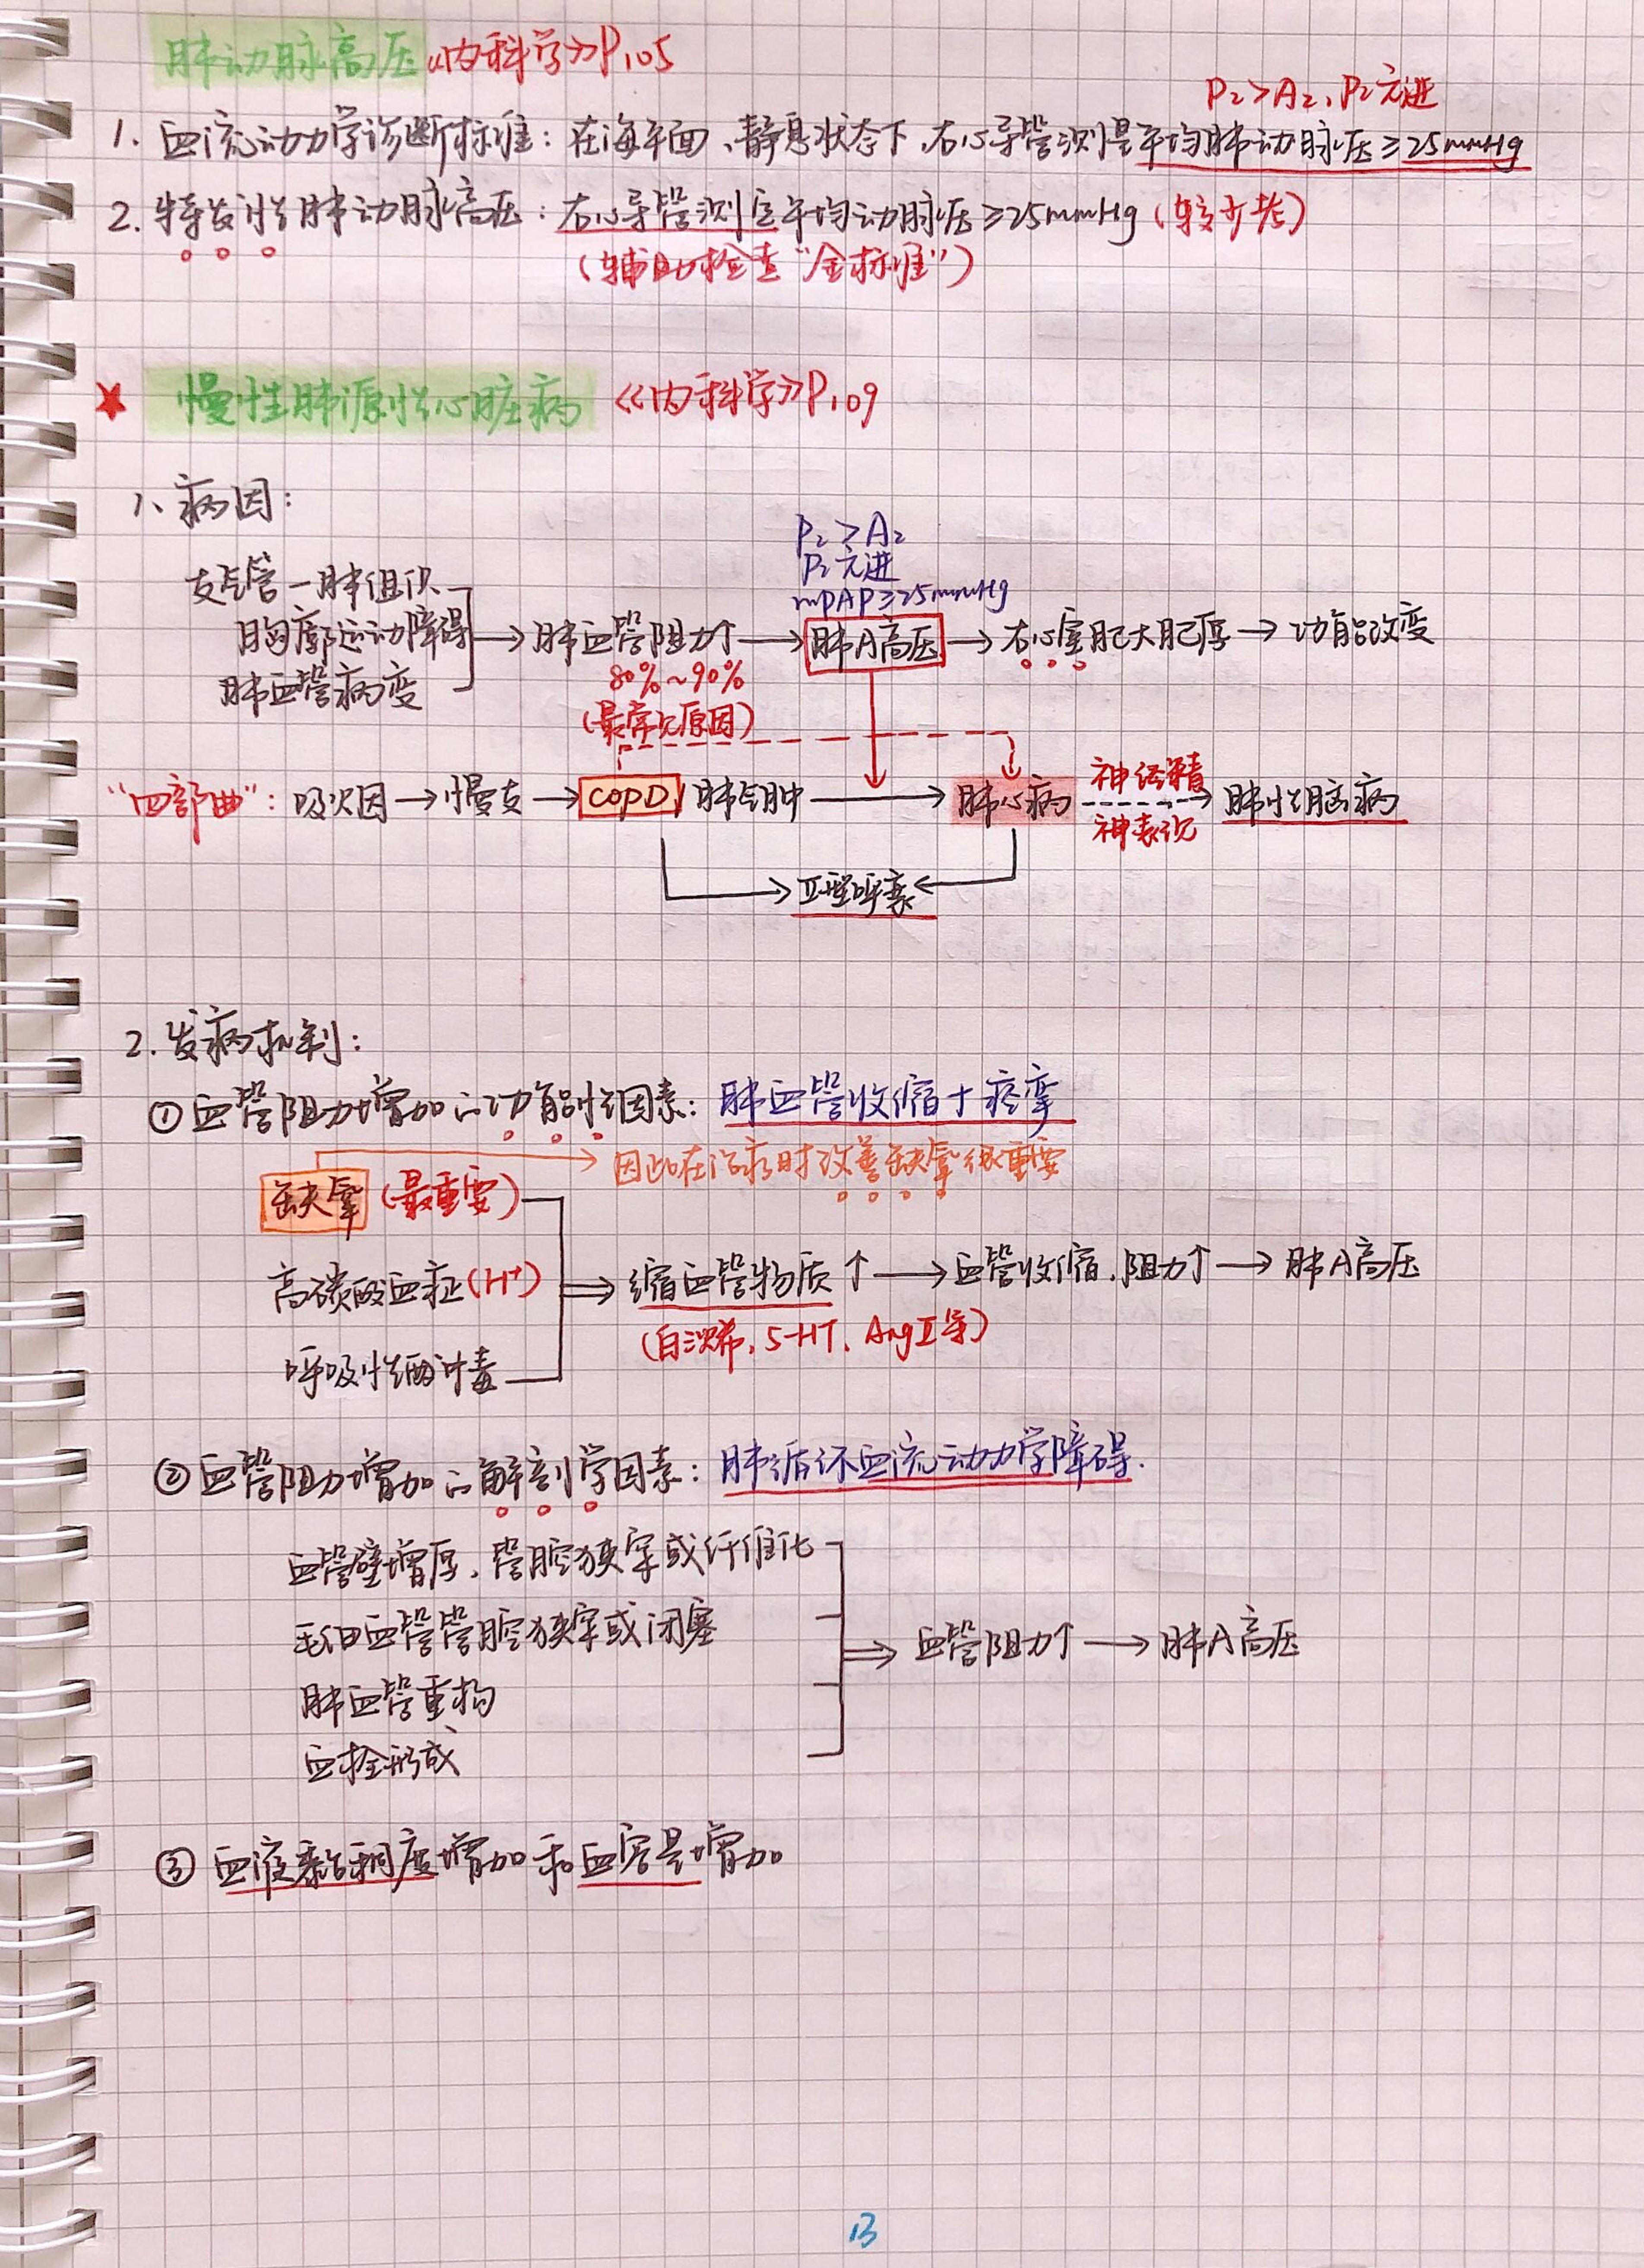 肺动脉高压《内科学》P105
P₂>A₂、P₂亢进
1. 血流动力学诊断标准：在海平面、静息状态下、右心导管测量平均肺动脉压≥25mmHg
2. 特发性肺动脉高压：右心导管测定平均动脉压≥25mmHg（较少考）
（辅助检查“金标准”）
★ 慢性肺源性心脏病 《内科学》P109
1、病因：
P₂>A₂
P₂亢进
mPAP≥25mmHg
支气管-肺组织
胸廓运动障碍 → 肺血管阻力↑ → 肺A高压 → 右心室肥大肥厚 → 功能改变
肺血管病变
80%~90%
（最常见原因）
“四部曲”：吸烟 → 慢支 → COPD/肺气肿 → 肺心病 → 肺性脑病
神经精
神表现
Ⅱ型呼衰
2. 发病机制：
① 血管阻力增加的功能性因素：肺血管收缩+痉挛
因此在治疗时改善缺氧很重要
缺氧（最重要）
高碳酸血症(H⁺) ⇒ 缩血管物质↑ → 血管收缩.阻力↑ → 肺A高压
（白三烯、5-HT、AngⅡ等）
呼吸性酸中毒
② 血管阻力增加的解剖学因素：肺循环血流动力学障碍.
血管壁增厚、管腔狭窄或纤维化
毛细血管管腔狭窄或闭塞 ⇒ 血管阻力↑ → 肺A高压
肺血管重构
血栓形成
③ 血液黏稠度增加和血容量增加
13